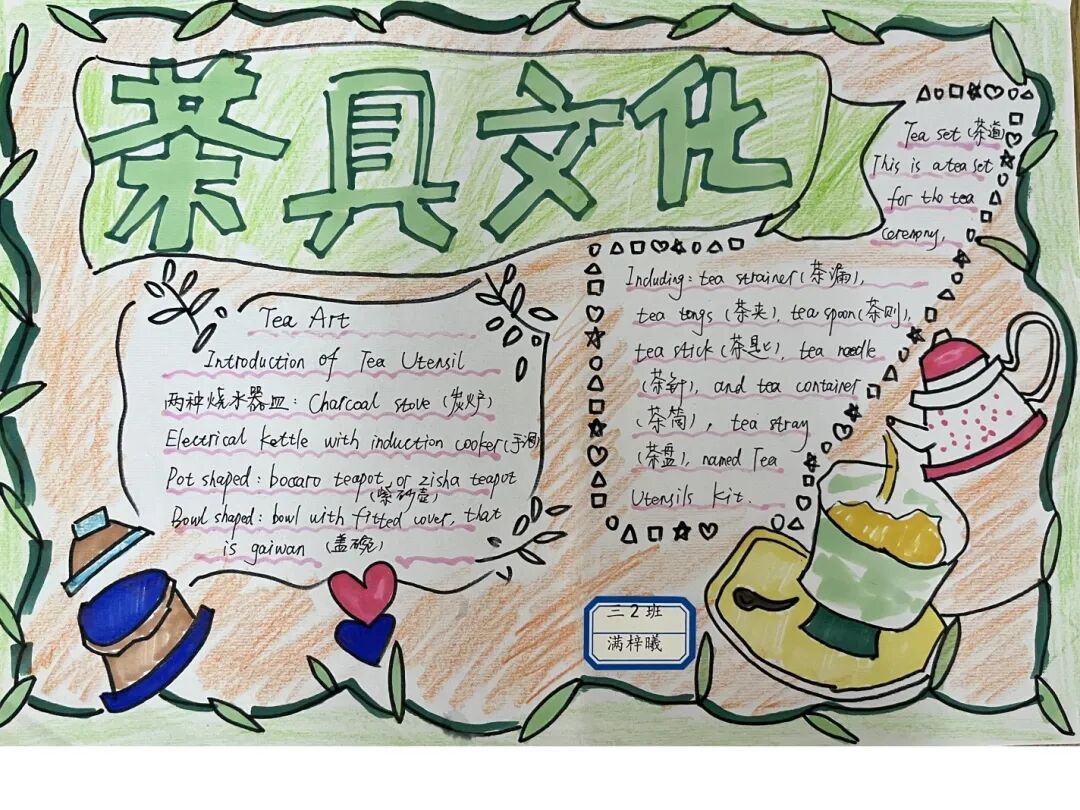 茶具文化
Tea Art
Introduction of Tea Utensil
两种烧水器皿: Charcoal stove (炭炉)
Electrical kettle with induction cooker (手
Pot shaped: boccaro teapot or zisha teapot
(紫砂壶)
Bowl shaped: bowl with fitted cover, that
is gaiwan (盖碗)
Tea set (茶道)
This is a tea set
for tho tea
ceremony,
Including: tea strainer (茶漏),
tea tongs (茶夹), tea spoon (茶则),
tea stick (茶匙), tea needle
(茶针), and tea container
(茶筒), tea stray
(茶盘), named Tea
Utensils Kit.
三2班
满梓曦